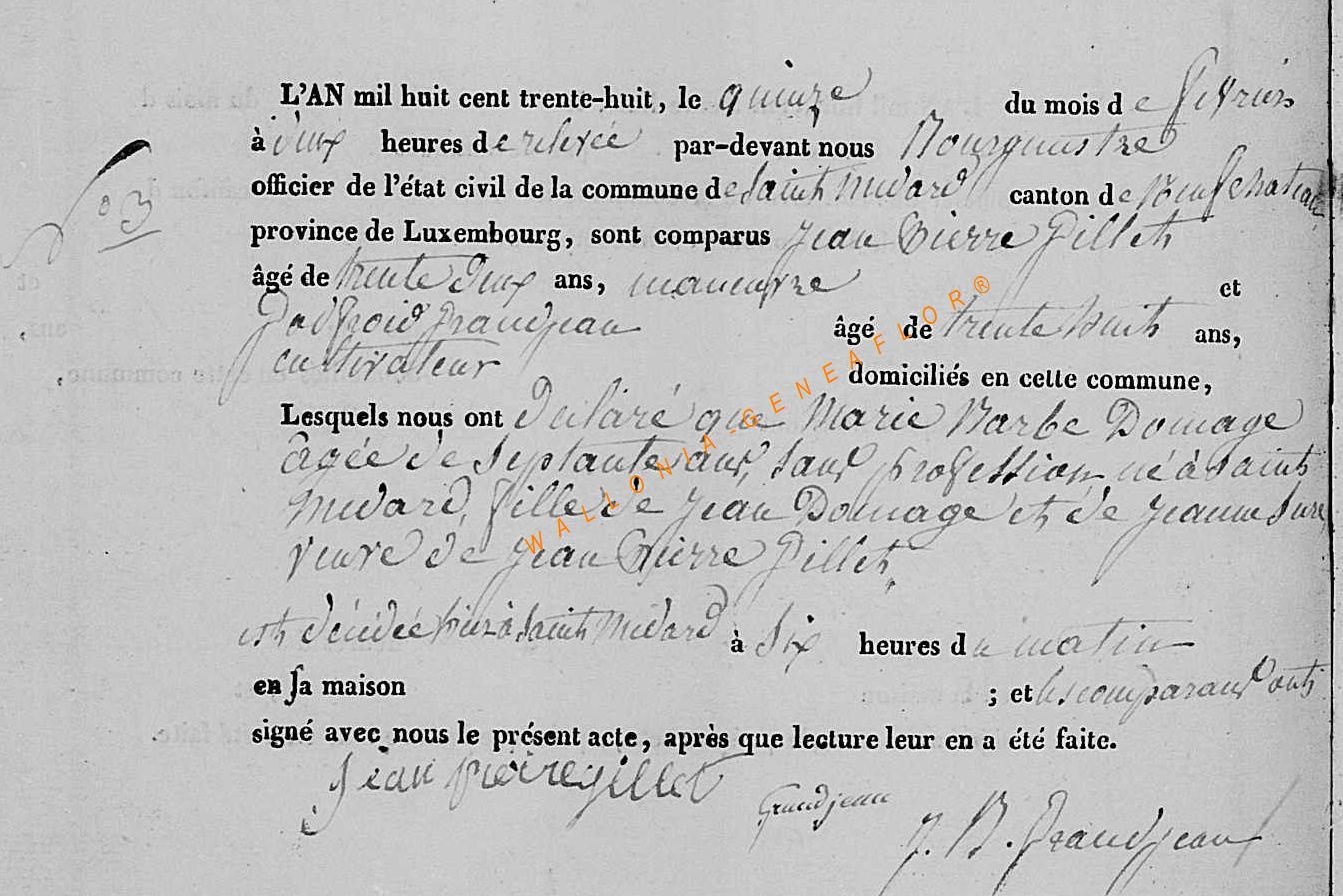 L'AN mil huit cent trente-huit, le quinze du mois de fevrier
à deux heures de relevée par-devant nous Bourguestre
officier de l'état civil de la commune de Saint Medard canton de Neufchateau
N° 3
province de Luxembourg, sont comparus Jean Pierre Gillet
âgé de trente deux ans, maneuvre et
Godfroid Grandjean âgé de trente huit ans,
cultivateur domiciliés en cette commune,
Lesquels nous ont déclaré que Marie Barbe Domage
agée de septante ans, sans profession né à Saint
Medard, fille de Jean Domage et de Jeanne
veuve de Jean Pierre Gillet
est décédée hier à Saint Medard à six heures du matin
en sa maison ; et les comparans ont
signé avec nous le présent acte, après que lecture leur en a été faite.
Jean pierre gillet
Grandjean
J. B. Grandjean
WALLONIA-GENEAFLOR®